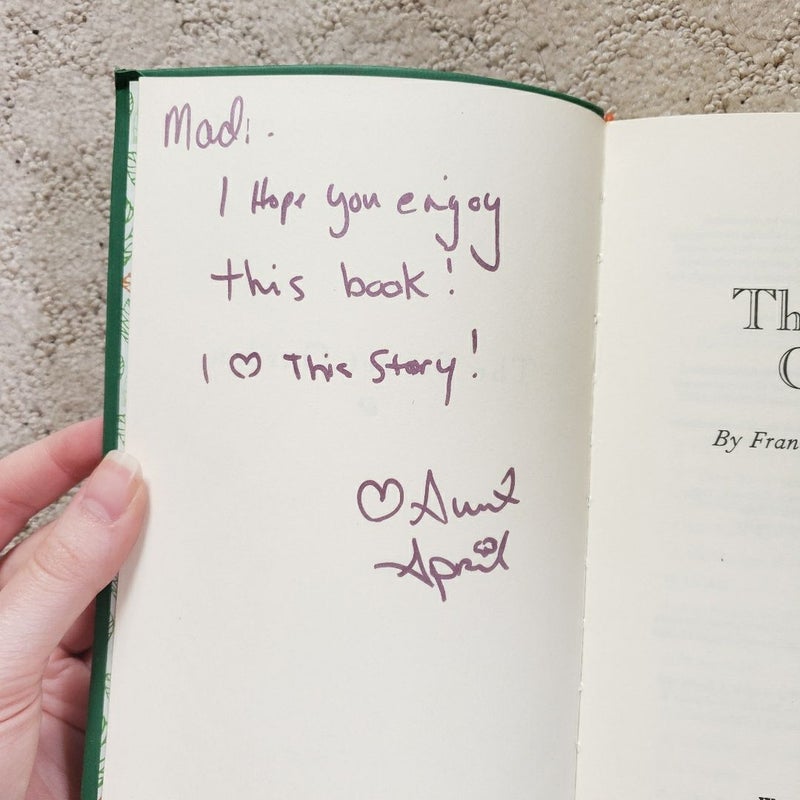 Madi.
I Hope you enjoy
this book!
I ♡ This Story!
♡ Aunt
April
Th
By Fran